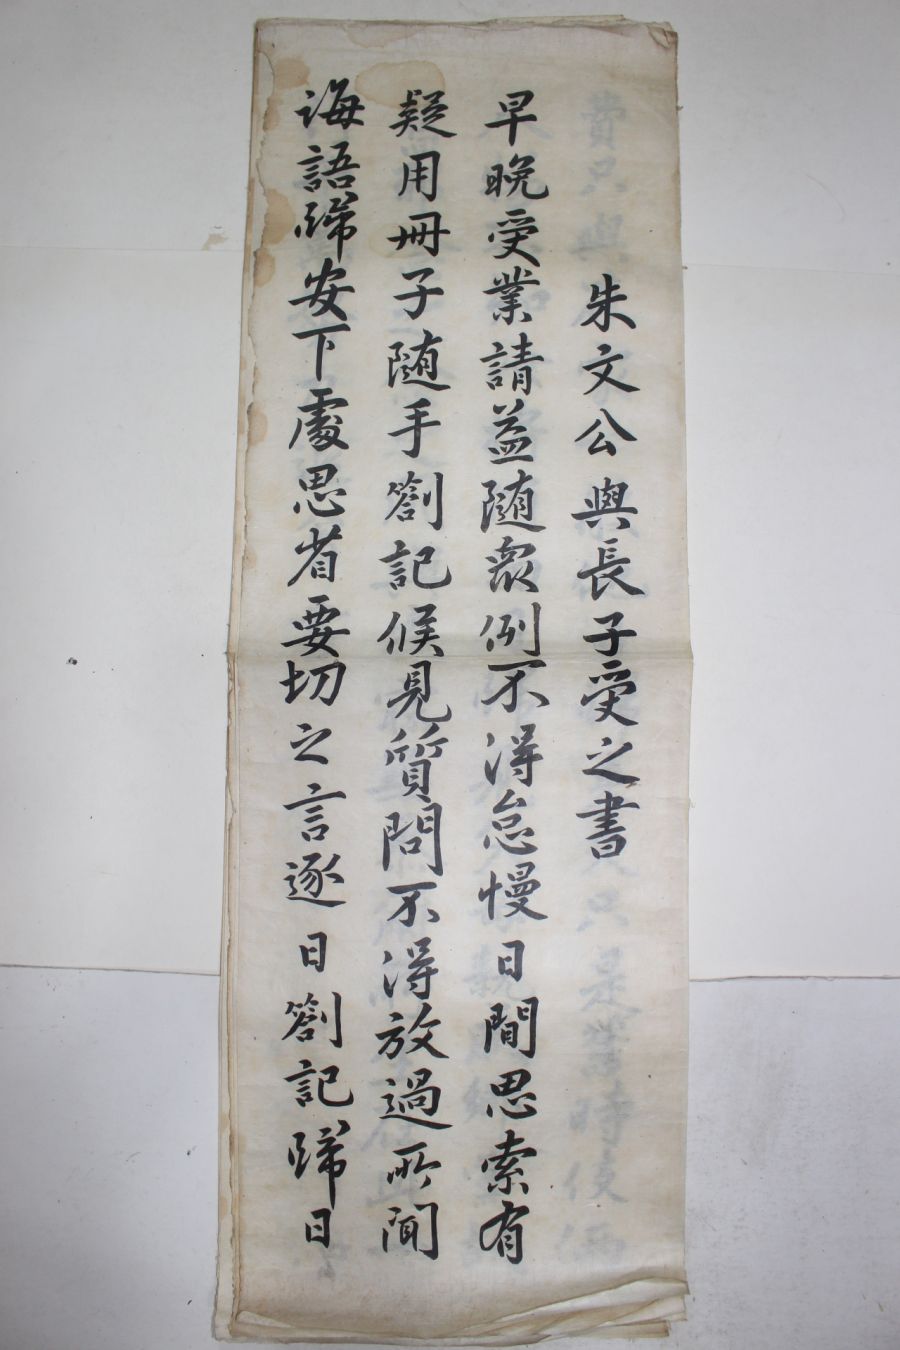 朱文公與長子受之書
早晩受業請益随衆例不得怠慢日間思索有
疑用冊子随手劄記候見質問不得放過所聞
誨語歸安下處思省要切之言逐日劄記歸日